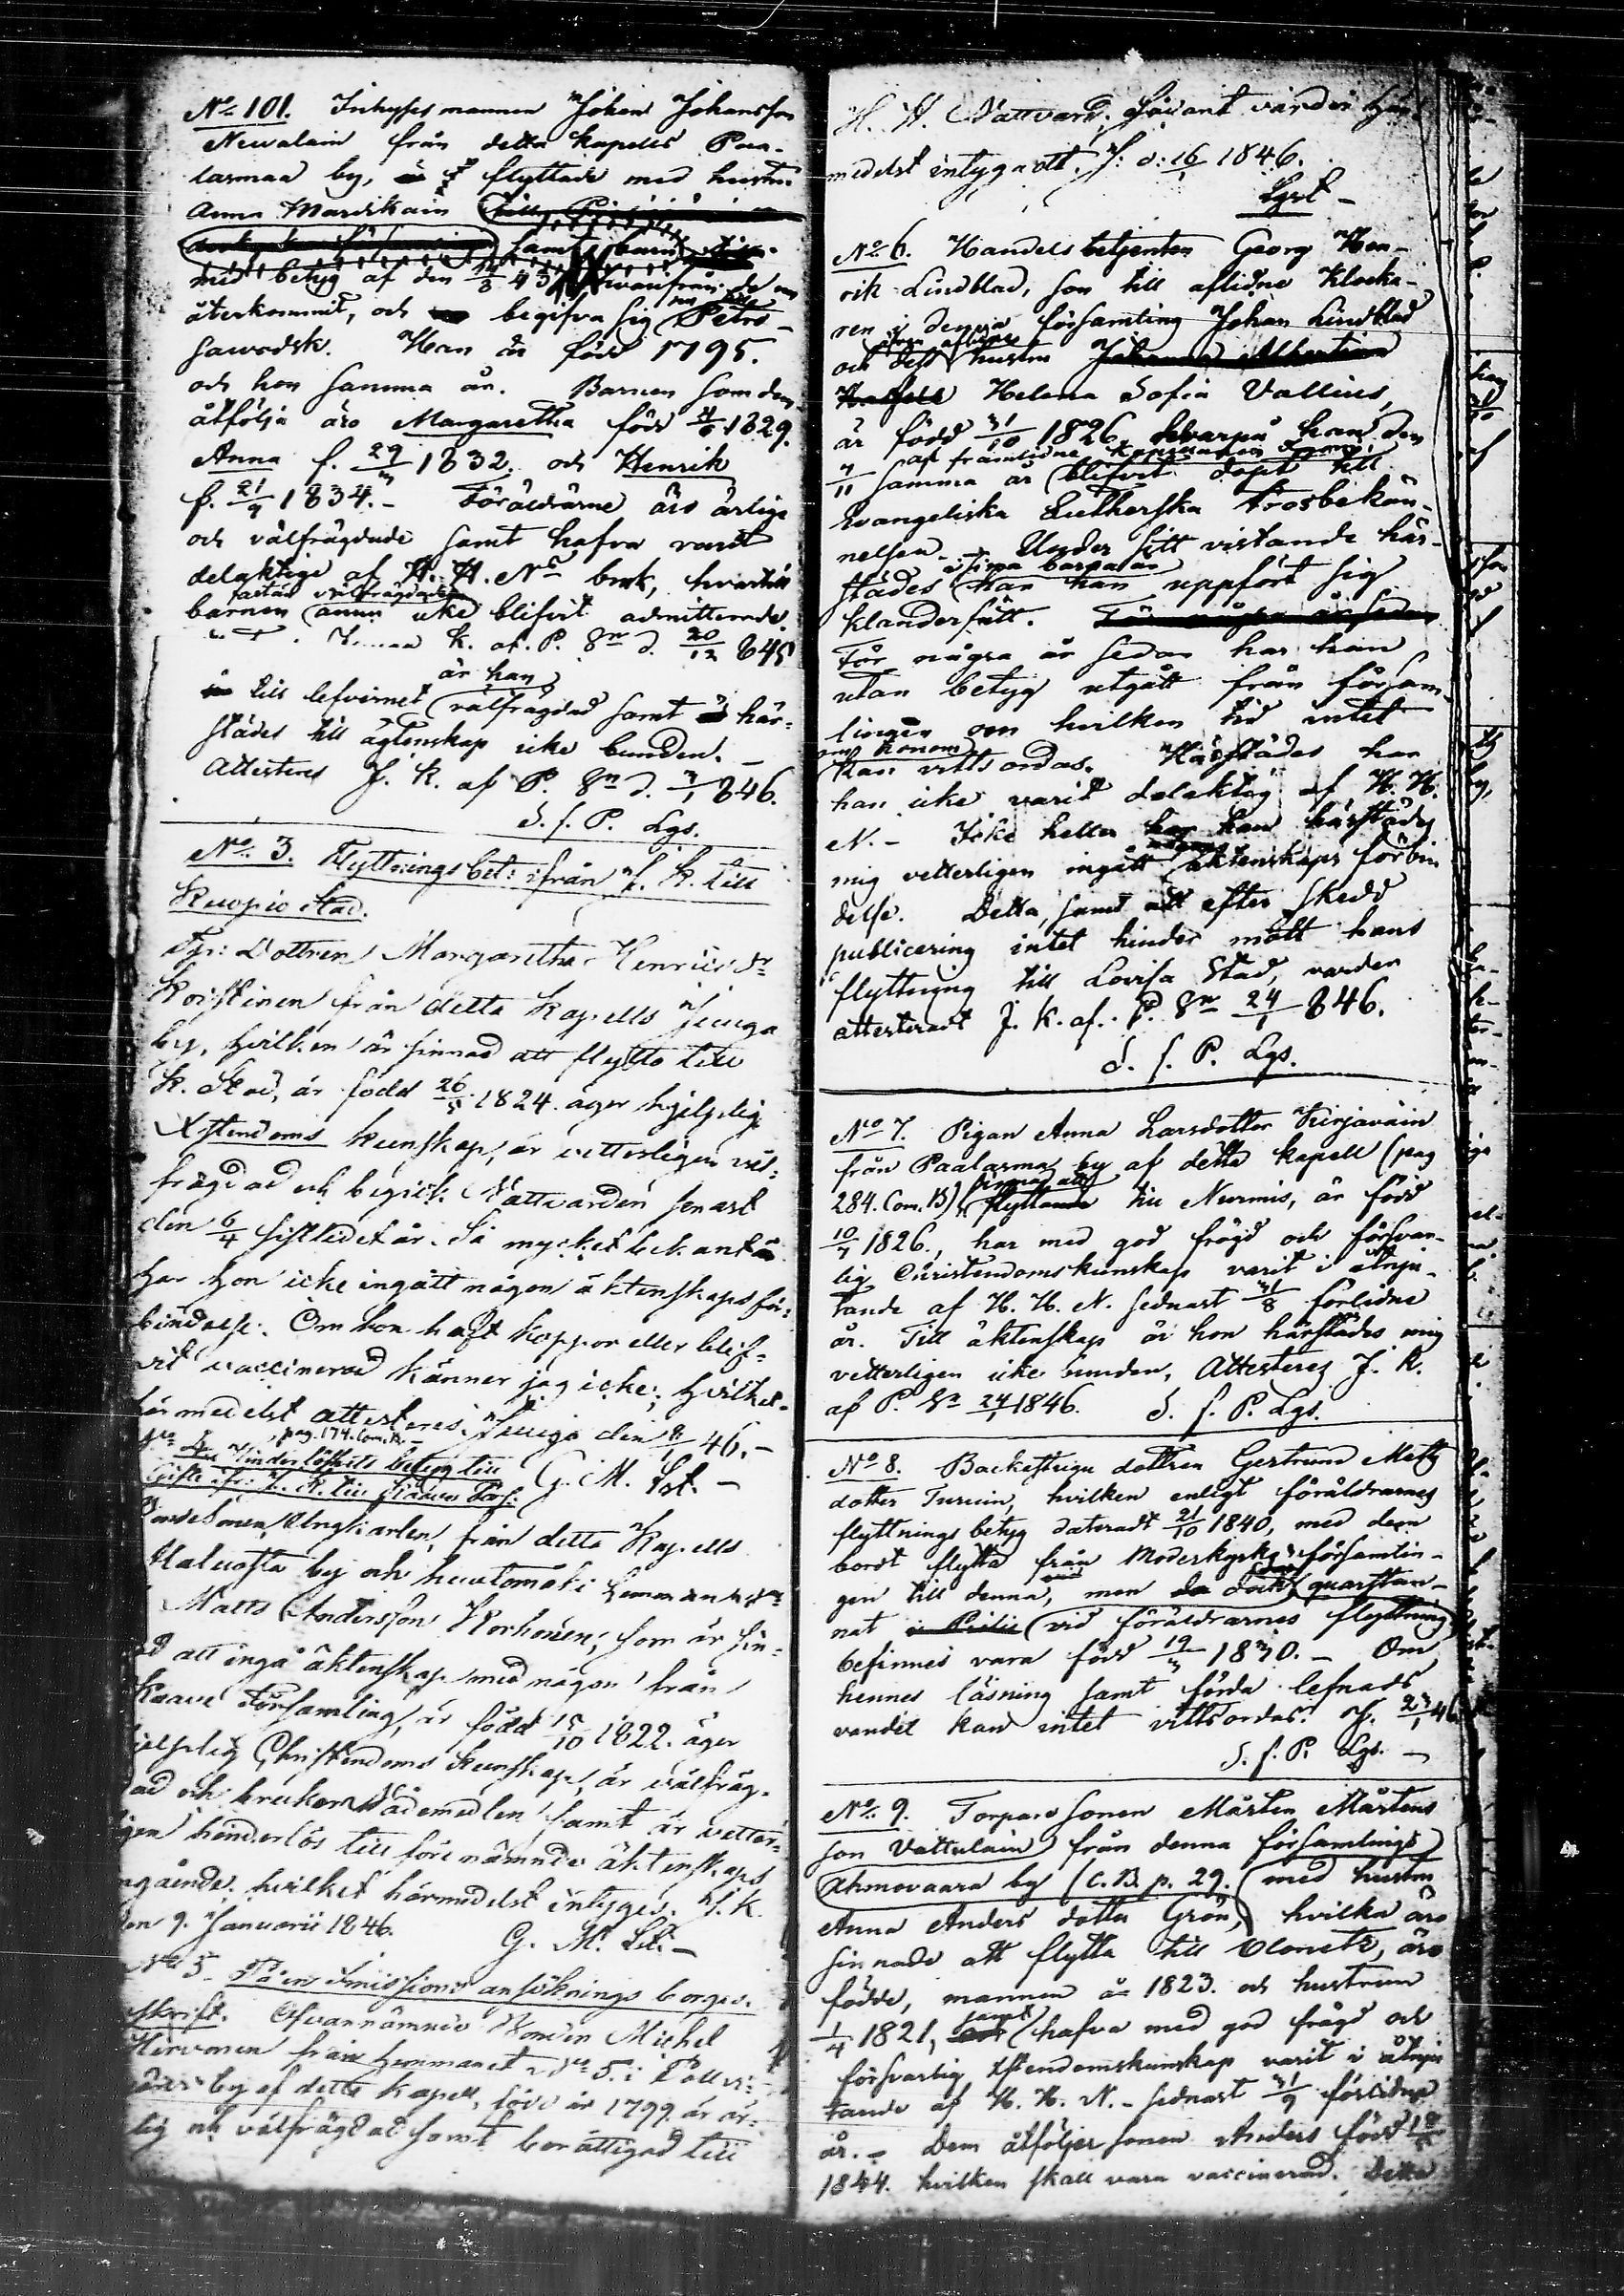 No 101. Inhyses mannen Johan Johansson
Nevalain från detta kapells Paa-
lasmaa by, flyttade med hustru
Anna Mardikain
samt barn
med betyg af den 14/3 43 hvarifrån de nu
återkommit, och begifva sig nu till Petro-
sawodsk. Han är född 1795.
och hon samma år. Barnen som dem
åtfölja äro Margaretha född 1829.
Anna f. 29/3 1832. och Henrik
f. 21/9 1834. - Föräldrarne äro ärlige
och välfrägdade samt hafva varit
delaktige af H. H. Nds bruk, hvartill
barnen ännu icke blifvit admitterade.
K. af P. 8n d. 20/12 845
till lefvernet är han välfrägdad samt här-
städes till ägtenskap icke bunden. -
Attesteras J. K. af P. 8n d. 3/1 846.
S. f. P. Lgs.
No 3. Flyttnings bet: ifrån J. K. till
Kuopio Stad.
Dottren Margaretha Henricsdr
Koistinen från detta Kapells Juuga
by, hvilken är sinnad att flytta till
K. Stad, är född 26/5 1824. äger hjelplig
Xstendoms kunskap, är vetterligen väl-
frägdad och begick Nattvarden senast
den 6/4 sistledet år. Så mycket bekant är
har hon icke ingått någon äktenskaps för-
bindelse. Om hon haft koppor eller blif-
vit vaccinerad känner jag icke; hvilket
härmedelst attesteres. Juuga den 8/1 46. -
pag. 174. Com. B. -
G. M. Lst. -
No 4 Hinderlöshets betyg till
Gifte ifr: J. K. till Kaavi Förs.
Bondesonen, Ungkarlen, från detta Kapells
Halivosta by och
Matts Andersson Korhonen, som är sin-
nad att ingå äktenskap med någon från
Kaavi Församling, är född 15/10 1822. äger
hjelplig Christendoms kunskap, är välfräg-
dad och brukar Nådemedlen samt är vetter-
ligen hinderlös till förenämnde äktenskaps
ingående. hvilket härmedelst intyges. J. K.
den 9. Januarii 1846.
G. M. Lst. -
No 5. På en Imissions ansöknings borges-
skrift. Ofvannämnde Bonden Michel
Hirvonen från hemmanet No 5. i Polvi-
by af detta kapell, född år 1799. är är-
lig och välfrägdad samt berättigad till
H. H. Nattvard. Sådant varder här-
medelst intygadt. J: d: 16/1 1846.
Lgst -
No 6. Handels betjenten Georg Hen-
rik Lindblad, son till aflidne Klocka-
ren i denna församling Johan Lindblad
och dess även aflidne hustru Johanna Albertina
Helena Sofia Vallius,
är född 31/10 1826, hvarpå han den
7/11 samma år af framlidne Kapellanen blifvit döpt till
Evangeliska Lutherska trosbekän-
nelsen. - Under sitt vistande här-
städes i sina barnaår har han uppfört sig
klanderfritt. För några år sedan
För några år sedan har han
utan betyg utgått från försam-
lingen om hvilken tid intet
om honom kan vittsordas. Härstädes har
han icke varit delaktig af H. H.
N. - Icke heller har han härstädes
mig vetterligen ingått någon äktenskaps förbin-
delse. Detta, samt att efter skedd
publicering intet hinder mött hans
flyttning till Lovisa Stad, varder
attesteradt J. K. af P. 8n 24/1 846.
S. f. P. Lgs.
No 7. Pigan Anna Larsdotter Kirjavain
från Paalasmaa by af detta kapell (pag
284. Com. B) sinnad att flytta till Nurmis, är född
10/7 1826., har med god frägd och försvar-
lig Christendomskunskap varit i åtnju-
tande af H. H. N. sednast 31/8 förlidne
år. Till äktenskap är hon härstädes mig
vetterligen icke bunden, Attesteras J. K.
af P. 8n 24/1 1846. S. f. P. Lgs.
No 8. Backstugu dottren Gertrud Mats
dotter Turuin, hvilken enligt föräldrarnes
flyttnings betyg dateradt 21/10 1840, med dem
bordt flytta från Moderkyrko församlin-
gen till denna, men dock qvarstan-
nat vid föräldrarnes flyttning
befinnes vara född 19/3 1830. - Om
hennes läsning samt förda lefnads
vandel kan intet vittsordas. J. 2
S. f. P. Lgs. -
No 9. Torpare Sonen Mårten Mårtens
son Vattulain från denna församlings
Ahmovaara by (C.B. p. 29. med hustru
Anna Anders dotter Grön, hvilka äro
sinnade att flytta till Olonetz, äro
födde, mannen år 1823. och hustrun
1/4 1821, samt hafva med god frägd och
försvarlig Xstendomskunskap varit i åtnju
tande af H. H. N. - sednast 31/9 förlidne
år. - Dem åtföljer sonen Anders född
1844. hvilken skall vara vaccinerad. Detta